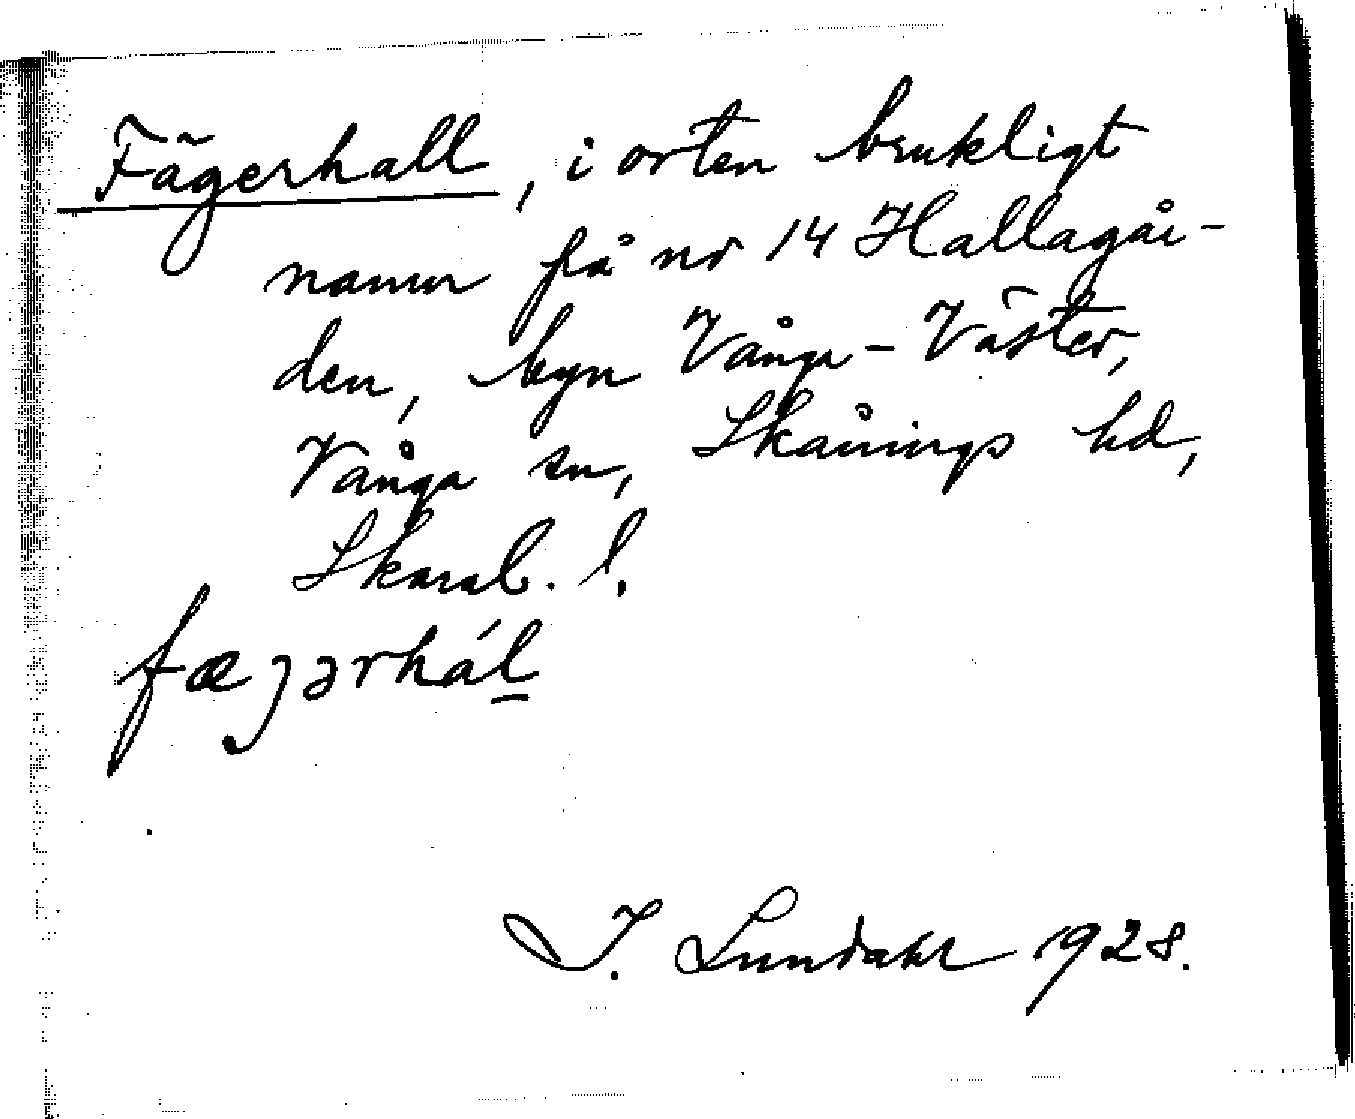 Fägerhall, i orten brukligt
namn på nr 14 Hallagår-
den, byn Vånga-Väster,
Vånga sn, Skånings hd,
Skarab. l.
fæjərhál
I. Lundahl 1928.